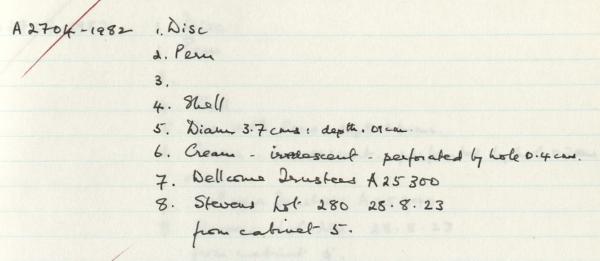 A2704-1982 1. Disc
2. Peru
3.
4. Shell
5. Diam 3.7 cms : depth. .01cm
6. Cream - irredescent - perforated by hole 0.4 cm.
7. Wellcome Trustees A25300
8. Stevens Lot 280 28.8.23
from cabinet 5.